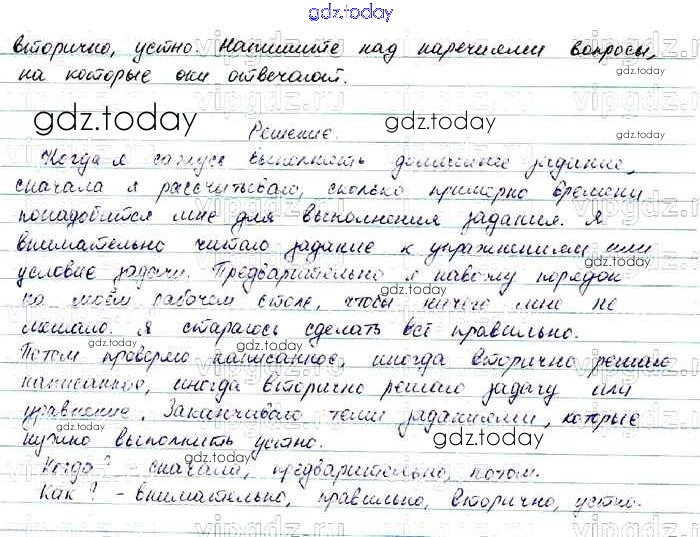 gdz.today
вторично, устно. Напишите над наречиями вопросы,
на которые они отвечают.
Решение.
Когда я сажусь выполнять домашнее задание,
сначала я рассчитываю, сколько примерно времени
понадобится мне для выполнения задания. Я
внимательно читаю задание к упражнениям или
условие задачи. Предварительно я навожу порядок
на моём рабочем столе, чтобы ничего мне не
мешало. Я стараюсь сделать всё правильно.
Потом проверяю написанное, иногда вторично решаю
написанное, иногда вторично решаю задачу или
уравнение. Заканчиваю теми заданиями, которые
нужно выполнить устно.
Когда? сначала, предварительно, потом.
Как? - внимательно, правильно, вторично, устно.